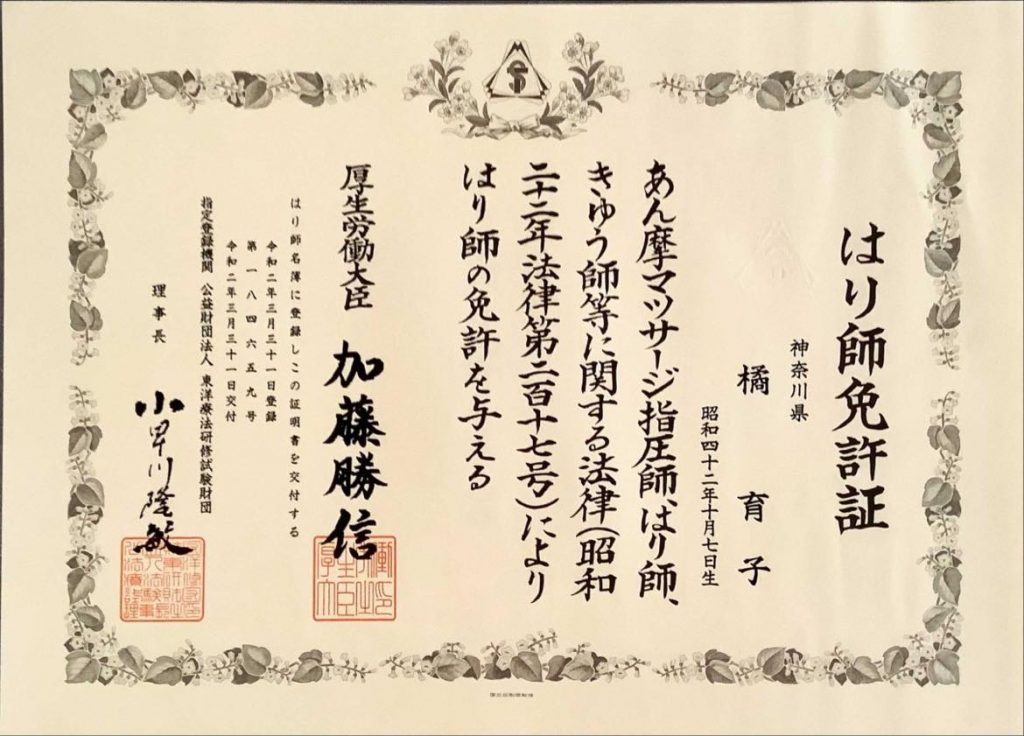 はり師免許証
神奈川県
橘育子
昭和四十二年十月七日生
あん摩マツサージ指圧師、はり師、
きゆう師等に関する法律(昭和
二十二年法律第二百十七号)により
はり師の免許を与える
厚生労働大臣 加藤勝信
はり師名簿に登録しこの証明書を交付する
令和二年三月三十一日登録
第一八四六五九号
令和二年三月三十一日交付
指定登録機関 公益財団法人 東洋療法研修試験財団
理事長 小早川隆敏